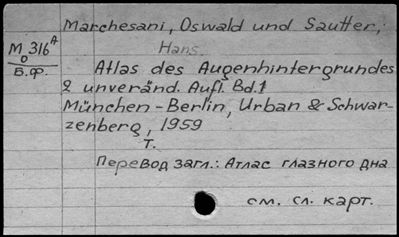 Marchesani, Oswald und Sautter,
Hans.
M 316 А
О
Б.Ф.
Atlas des Augenhintergrundes
2 unveränd. Aufl. Bd.1
München-Berlin, Urban & Schwar-
zenberg, 1959
Т.
Перевод загл.: Атлас глазного дна
см. сл. карт.